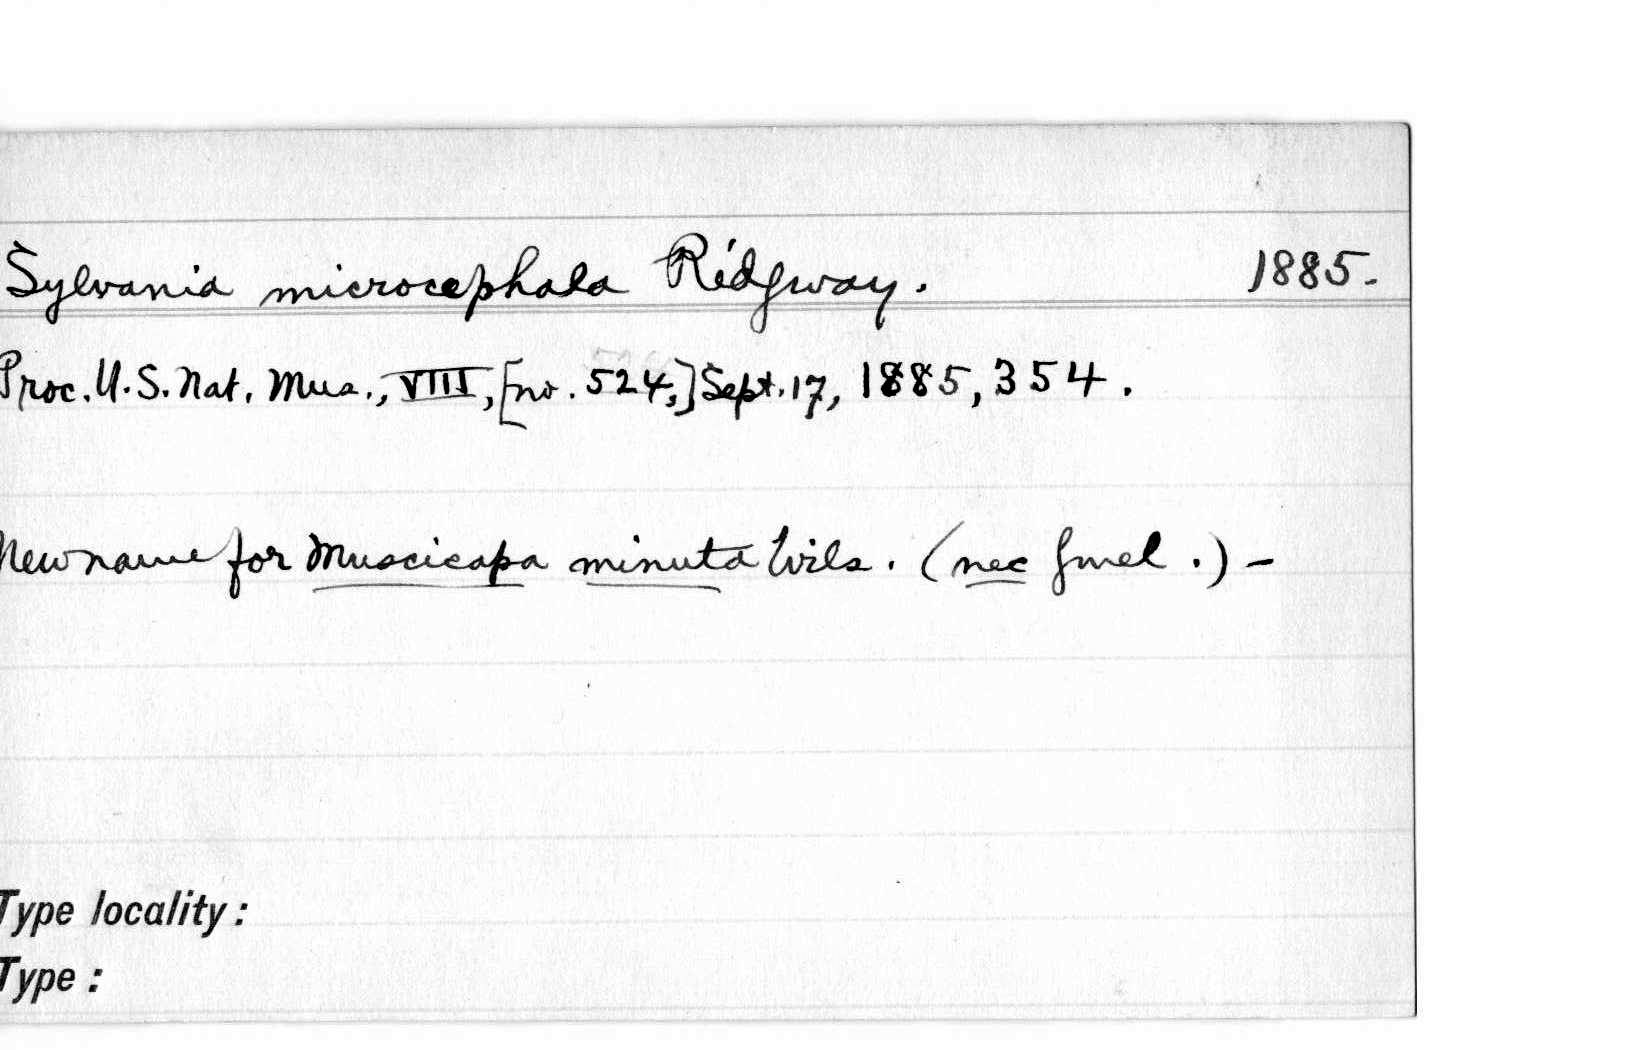 Sylvania microcephala Ridgway. 1885.
Proc. U.S. Nat. Mus., VIII, [no. 524,] Sept. 17, 1885, 354.
New name for Muscicapa minuta Wils. (nec Gmel.) -
Type locality:
Type: